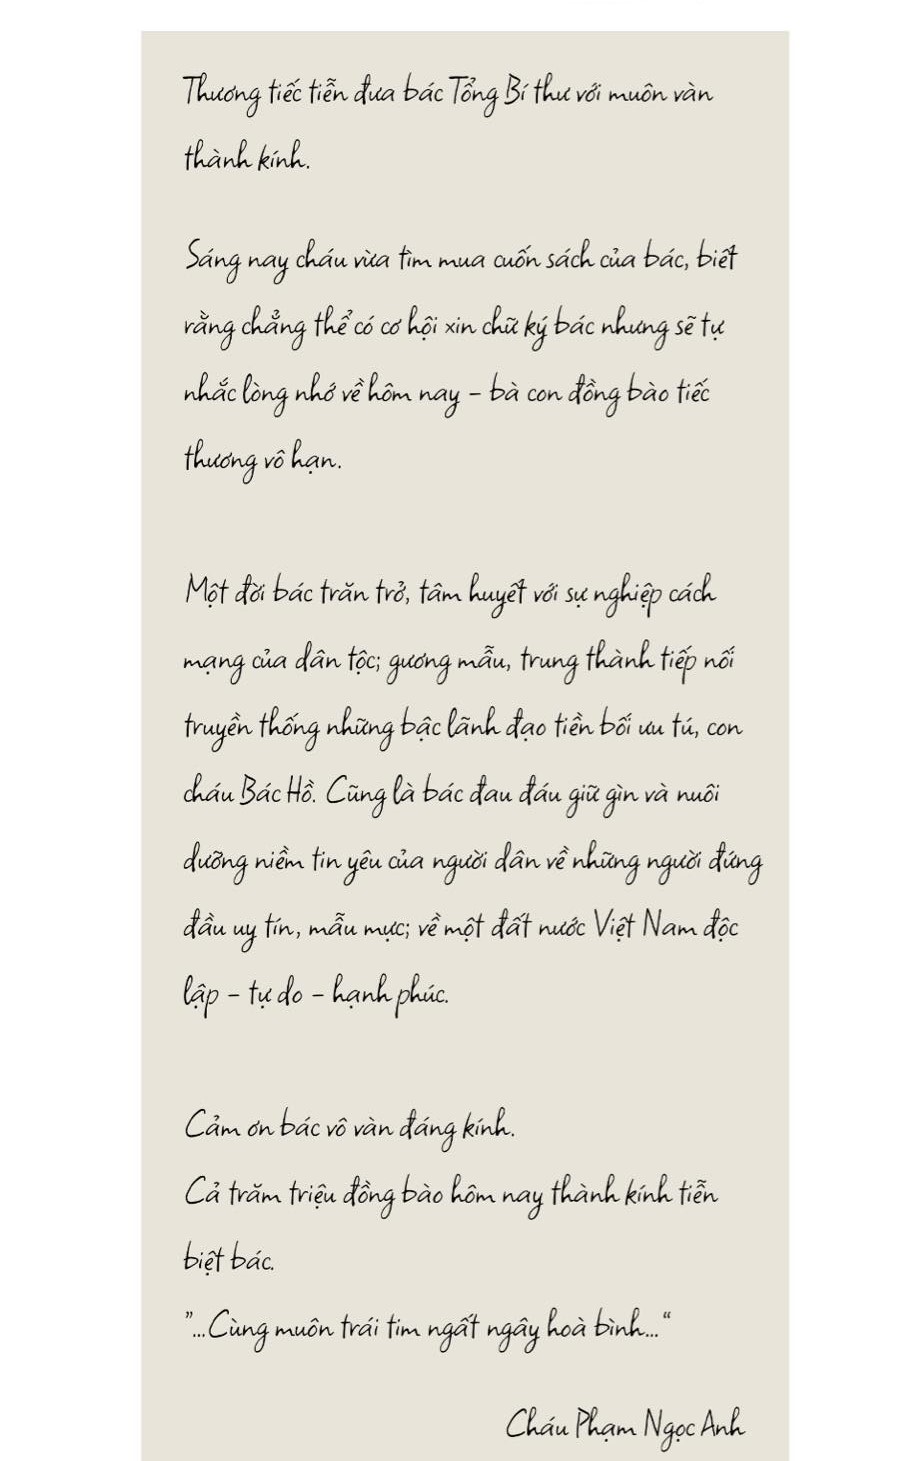 Thương tiếc tiễn đưa bác Tổng Bí thư với muôn vàn
thành kính.
Sáng nay cháu vừa tìm mua cuốn sách của bác, biết
rằng chẳng thể có cơ hội xin chữ ký bác nhưng sẽ tự
nhắc lòng nhớ về hôm nay - bà con đồng bào tiếc
thương vô hạn.
Một đời bác trăn trở, tâm huyết với sự nghiệp cách
mạng của dân tộc; gương mẫu, trung thành tiếp nối
truyền thống những bậc lãnh đạo tiền bối ưu tú, con
cháu Bác Hồ. Cũng là bác đau đáu giữ gìn và nuôi
dưỡng niềm tin yêu của người dân về những người đứng
đầu uy tín, mẫu mực; về một đất nước Việt Nam độc
lập - tự do - hạnh phúc.
Cảm ơn bác vô vàn đáng kính.
Cả trăm triệu đồng bào hôm nay thành kính tiễn
biệt bác.
”...Cùng muôn trái tim ngất ngây hoà bình...“
Cháu Phạm Ngọc Anh